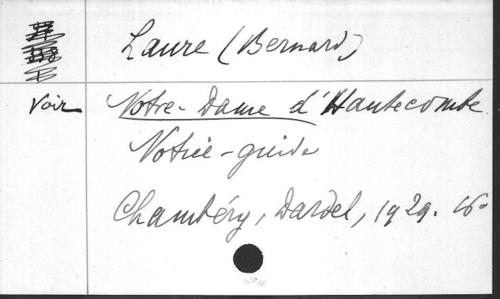 Laure (Bernard)
Voir Notre-Dame d'Hautecombe
Notice-guide
Chambéry, Dardel, 1929. 16°